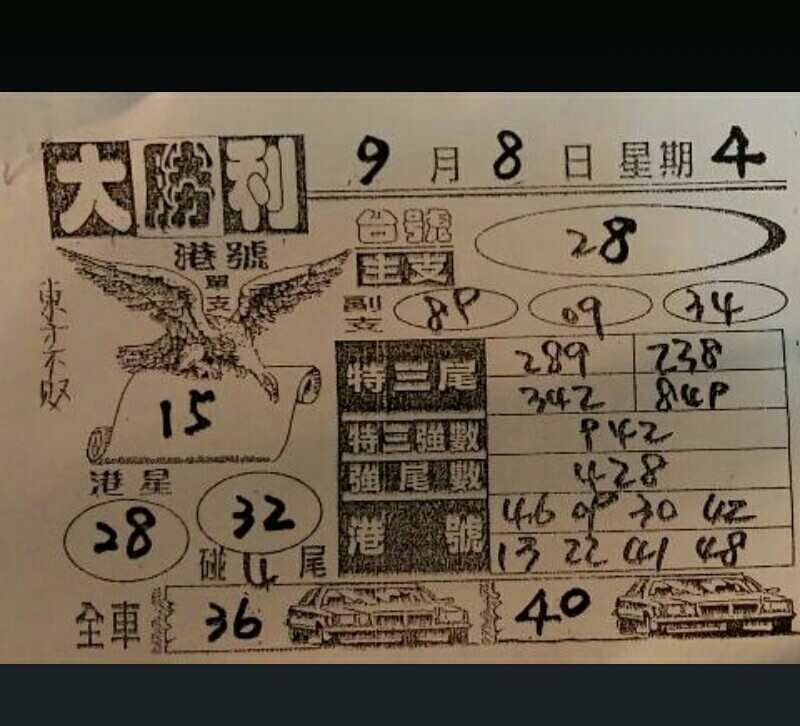 大勝利
9月8日星期4
港號
單支
15
東方不敗
港星
28 32
碰4尾
台號
主支
28
副支
09 34
特三尾
289 238
342
特三強數
942
強尾數
428
港號
46 30 42
13 22 41 48
全車
36 40